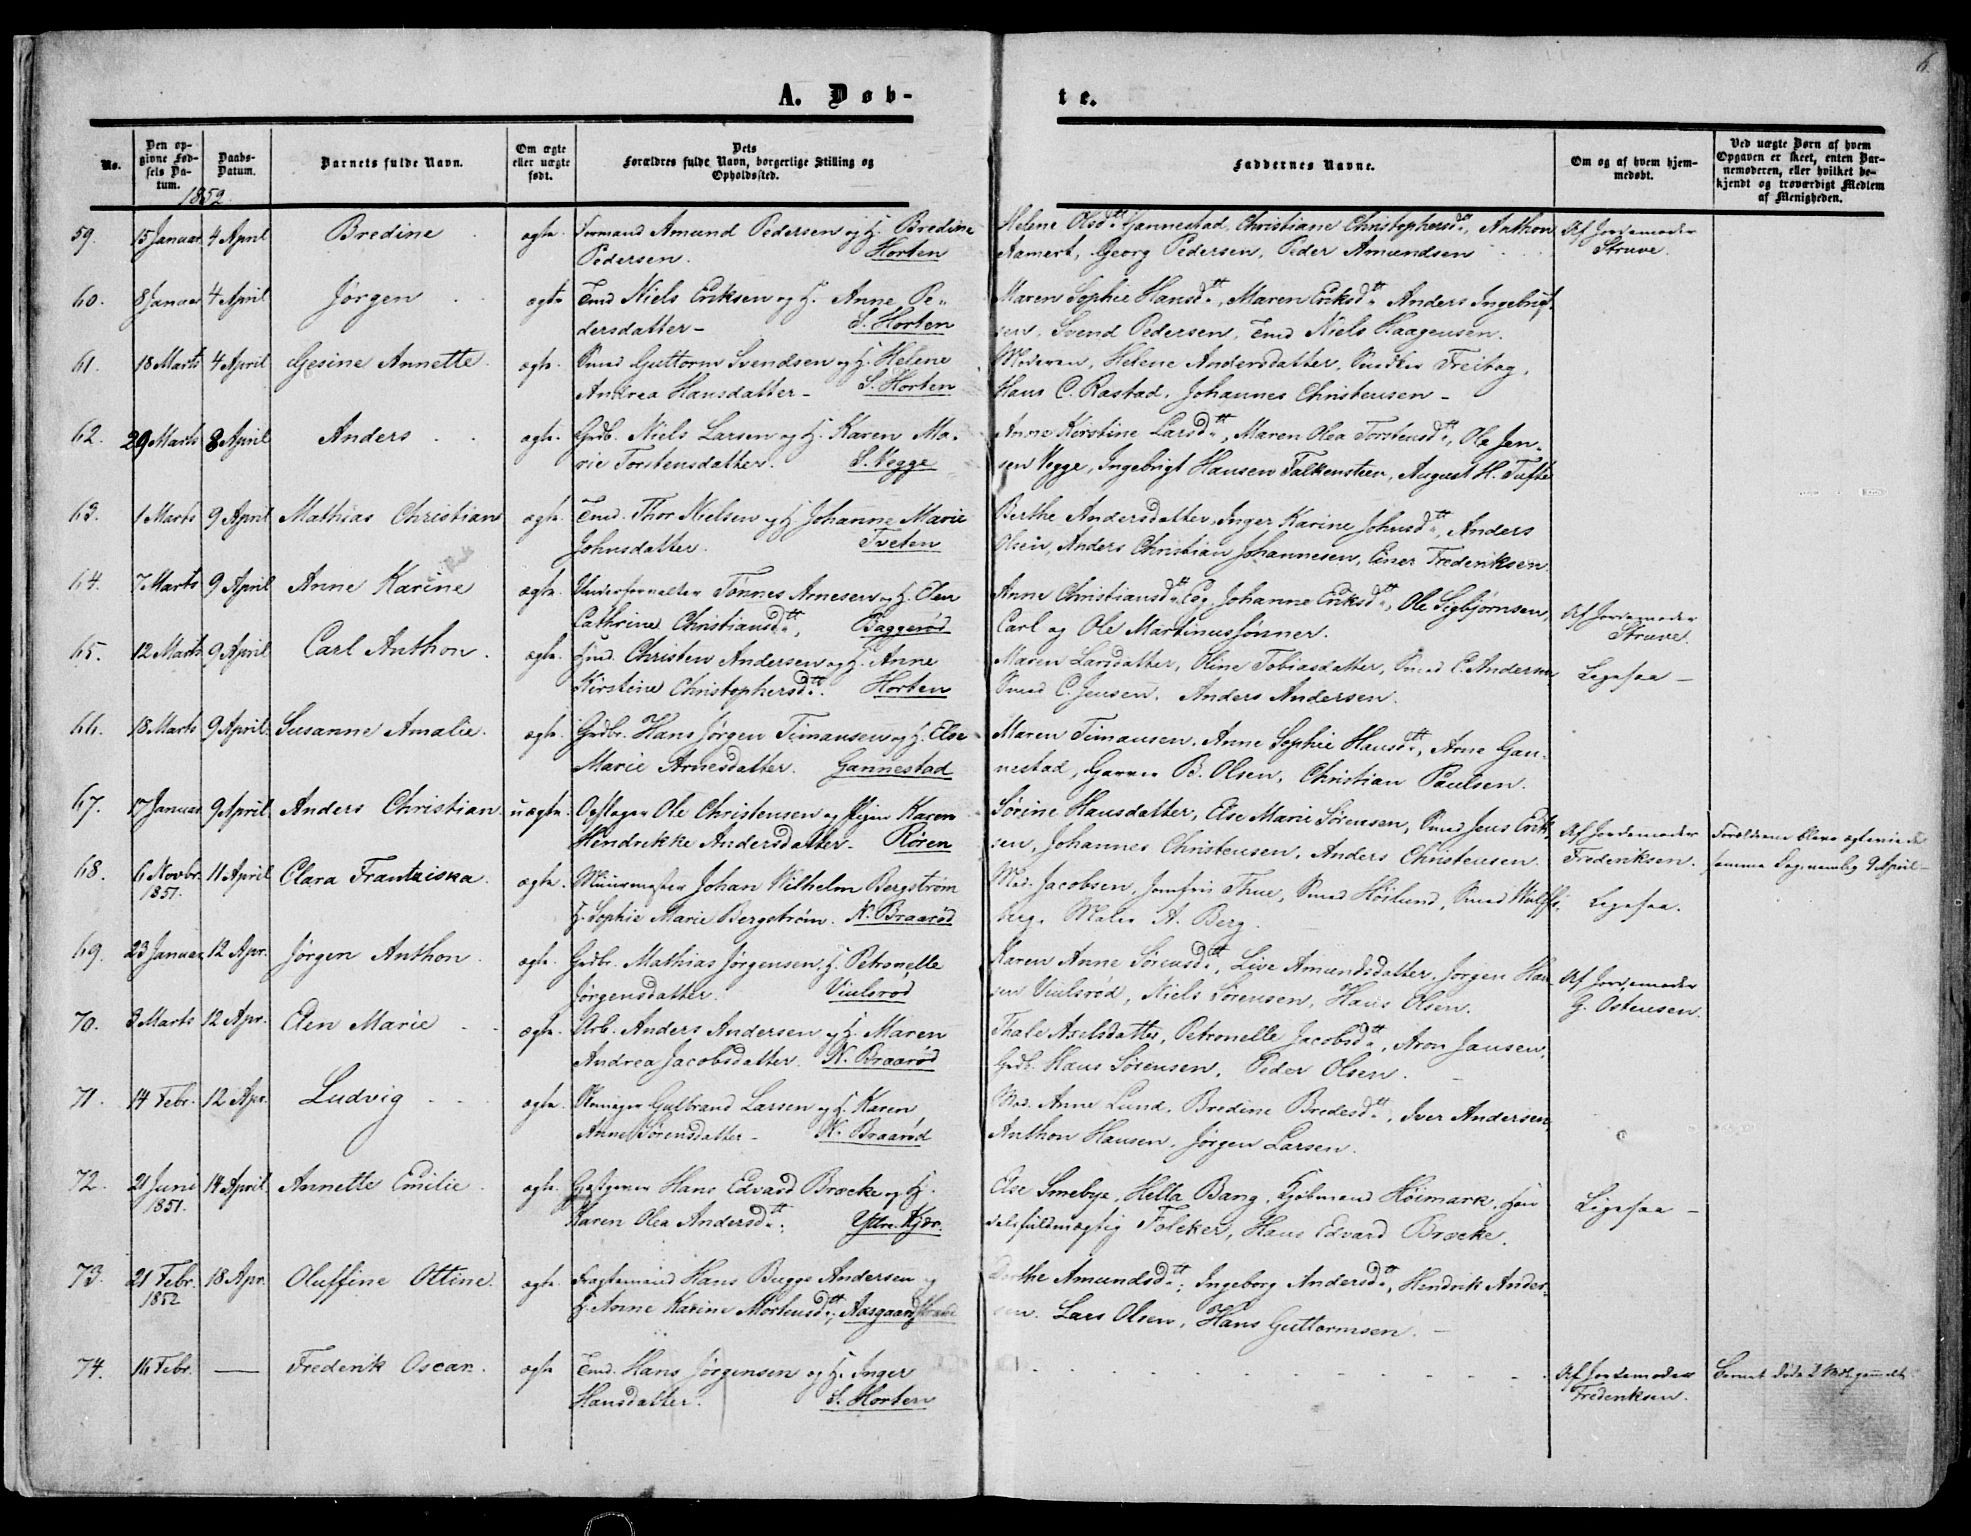 6
A. Døb-
te.
No.
Den op-
givne Fød-
sels Da-
tum.
Daabs-
Datum.
Barnets fulde Navn.
Om ægte
eller uægte
født.
Dets
Forældres fulde Navn, borgerlige Stilling og
Opholdssted.
Faddernes Navne.
Om og af hvem hjem-
medøbt.
Ved uægte Børn af hvem
Opgaven er skeet, enten Bar-
nemoderen, eller hvilket be-
kjendt og troværdigt Medlem
af Menigheden.
1852
59. 15 Januar 4 April Bredine ægte. Formand Amund Pedersen og H. Bredine
Pedersen. Horten
Helene Olsdtt. Gannestad, Christiane Christophersdtt., Anthon
Aamert, Georg Pedersen, Peder Amundsen
Af Jordemoder
Struve.
60. 8 Januar 4 April Jørgen ægte Tmd Niels Eriksen og H. Anne Pe-
dersdatter- S. Horten
Maren Sophie Hansdtt., Maren Eriksdtt. Anders Ingebrigt-
sen, Svend Pedersen, Tmd Niels Haagensen.
61. 18 Marts 4 April Gjesine Annette. ægte. Smed Guttorm Svendsen og H. Helene
Andrea Hansdatter- S. Horten
Moderen, Helene Andersdatter, Snedker Freitag,
Hans C. Rastad, Johannes Christensen-
62. 29 Marts 8 April Anders ægte. Grdb. Niels Larsen og H. Karen Ma-
rie Torstensdatter. S. Vegge.
Anne Kirstine Larsdtt., Maren Olea Torstensdtt., Ole Jen-
sen Vegge, Ingebrigt Hansen Falkensteen, August H. Tufte
63. 1 Marts 9 April Mathias Christian ægte. Tmd. Thor Nielsen og H. Johanne Marie
Johnsdatter. Tveten
Berthe Andersdatter, Inger Karine Johnsdtt., Anders
Olsen, Anders Christian Johannesen, Einer Frederiksen.
64. 7 Marts 9 April Anne Karine ægte. Underformeller Tønnes Arnesen og H. Elen
Cathrine Christiansdtt., Baggerød
Anne Christiansdtt. og Johanne Eriksdtt., Ole Sigbjørnsen,
Carl og Ole Martinussønner.
Af Jordemoder
Struve.
65. 12 Marts 9 April Carl Anthon. ægte. Christen Andersen og H. Anne
Kirstine Christophersdtt. Horten
Maren Larsdatter, Oline Tobiasdatter, Smed C. Andersen
Smed C. Jensen, Anders Andersen.
Ligesaa-
66. 18 Marts 9 April Susanne Amalie. ægte. Grdbr. Hans Jørgen Timansen og H. Else
Marie Arnesdatter. Gannestad
Maren Timansen, Anne Sophie Hansdtt., Arne Gan-
nestad, Garver B. Olsen, Christian Paulsen.
67. 17 Januar 9 April Anders Christian. uægte. Opslager Ole Christensen og Pigen Karen
Hendrikke Andersdatter- Røren
Sørine Hansdatter, Else Marie Sørensen, Smed Jens Erik-
sen, Johannes Christensen, Anders Christensen.
Af Jordemoder
Frederiksen.
Forældrene bleve ægteviede
samme Dag nemlig 9 April-
68. 6 Novbr. 1851. 11 April Clara Frantziska. ægte. Muurmester Johan Wilhelm Bergstrøm
H. Sophie Marie Bergstrøm. N. Braarød
Mad. Jacobsen, Jomfru Thue, Smed Höslund, Smed Wulfs-
berg, Maler A. Berg.
Ligesaa.
69. 23 Januar 12 Apr. Jørgen Anthon. ægte. Grdbr. Mathias Jørgensen, H. Petronelle
Jørgensdatter. Viulsrød
Karen Anne Sørensdtt., Live Amundsdatter, Jørgen Han-
sen Viulsrød, Niels Sørensen, Hans Olsen.
Af Jordemoder
G. Ostensen.
70. 3 Marts 12 Apr. Elen Marie ægte. Arb. Anders Andersen og H. Maren
Andrea Jacobsdatter. N. Braarød
Thale Axelsdatter, Petronelle Jacobsdtt., Aron Jansen,
Grdb. Hans Sørensen, Peder Olsen.
71. 14 Febr. 12 Apr. Ludvig ægte. Gulbrand Larsen og H. Karen
Anne Sørensdatter- N. Braarød
Mad. Anne Lund, Bredine Bredesdtt., Iver Andersen,
Anthon Hansen, Jørgen Larsen.
72. 21 Juni 1851. 14 April Annette Emilie. ægte. Gjæstgiver Hans Edvard Broecke og H.
Karen Olea Andersdtt. Yttre Kjær.
Else Smebye, Hella Bang, Kjøbmand Höimark, Han-
delsfuldmægtig Folcker, Hans Edvard Broecke.
Ligesaa-
73. 21 Febr. 1852 18 Apr. Oluffine Ottine. ægte. Fragtemand Hans Bugge Andersen og
H. Anne Karine Mortensdtt.; Aasgaardstrand
Dorthe Amundsdtt.; Ingeborg Andersdtt., Hendrik Ander-
sen. Lars Olsen, Hans Guttormsen.-
74. 16 Febr. — Frederik Oscar. ægte Tmd. Hans Jørgensen og H. Inger
Hansdatter. S. Horten
Af Jordemoder
Frederiksen.
Barnet døde 2 Mdr. gammelt